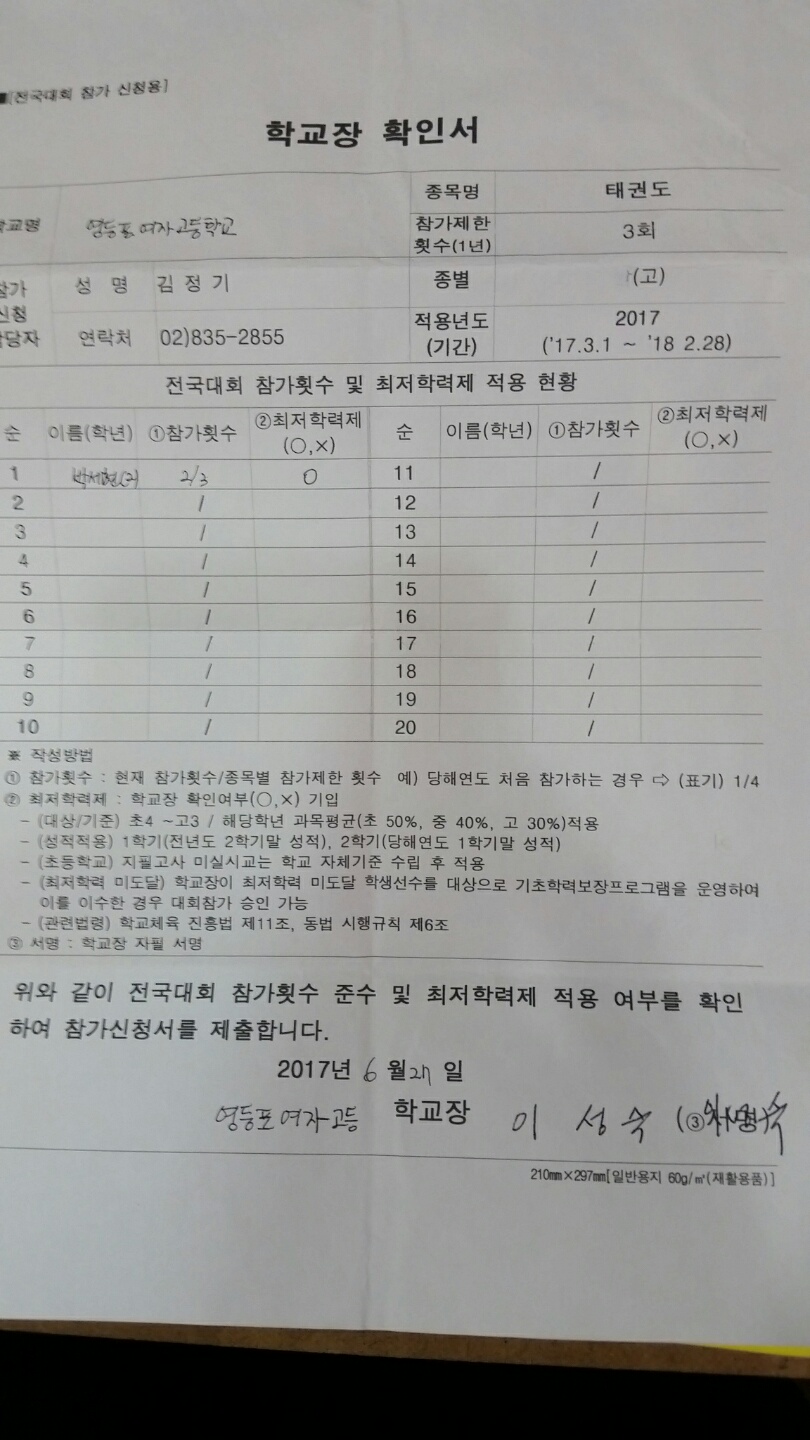 ■[전국대회 참가 신청용]
학교장 확인서
학교명 영등포여자고등학교 종목명 태권도
참가제한 횟수(1년) 3회
참가 신청 담당자 성 명 김 정 기 종별 (고)
연락처 02)835-2855 적용년도 (기간) 2017 ('17.3.1 ~ '18 2.28)
전국대회 참가횟수 및 최저학력제 적용 현황
순 이름(학년) ①참가횟수 ②최저학력제 (○,×) 순 이름(학년) ①참가횟수 ②최저학력제 (○,×)
1 박세현(2) 2/3 O 11 /
2 / 12 /
3 / 13 /
4 / 14 /
5 / 15 /
6 / 16 /
7 / 17 /
8 / 18 /
9 / 19 /
10 / 20 /
※ 작성방법
① 참가횟수 : 현재 참가횟수/종목별 참가제한 횟수 예) 당해연도 처음 참가하는 경우 ⇨ (표기) 1/4
② 최저학력제 : 학교장 확인여부(○,×) 기입
- (대상/기준) 초4 ~고3 / 해당학년 과목평균(초 50%, 중 40%, 고 30%)적용
- (성적적용) 1학기(전년도 2학기말 성적), 2학기(당해연도 1학기말 성적)
- (초등학교) 지필고사 미실시교는 학교 자체기준 수립 후 적용
- (최저학력 미도달) 학교장이 최저학력 미도달 학생선수를 대상으로 기초학력보장프로그램을 운영하여
이를 이수한 경우 대회참가 승인 가능
- (관련법령) 학교체육 진흥법 제11조, 동법 시행규칙 제6조
③ 서명 : 학교장 자필 서명
위와 같이 전국대회 참가횟수 준수 및 최저학력제 적용 여부를 확인
하여 참가신청서를 제출합니다.
2017년 6 월 27 일
영등포여자고등 학교장 이 성 숙 (③서명)
210㎜×297㎜[일반용지 60g/㎡(재활용품)]